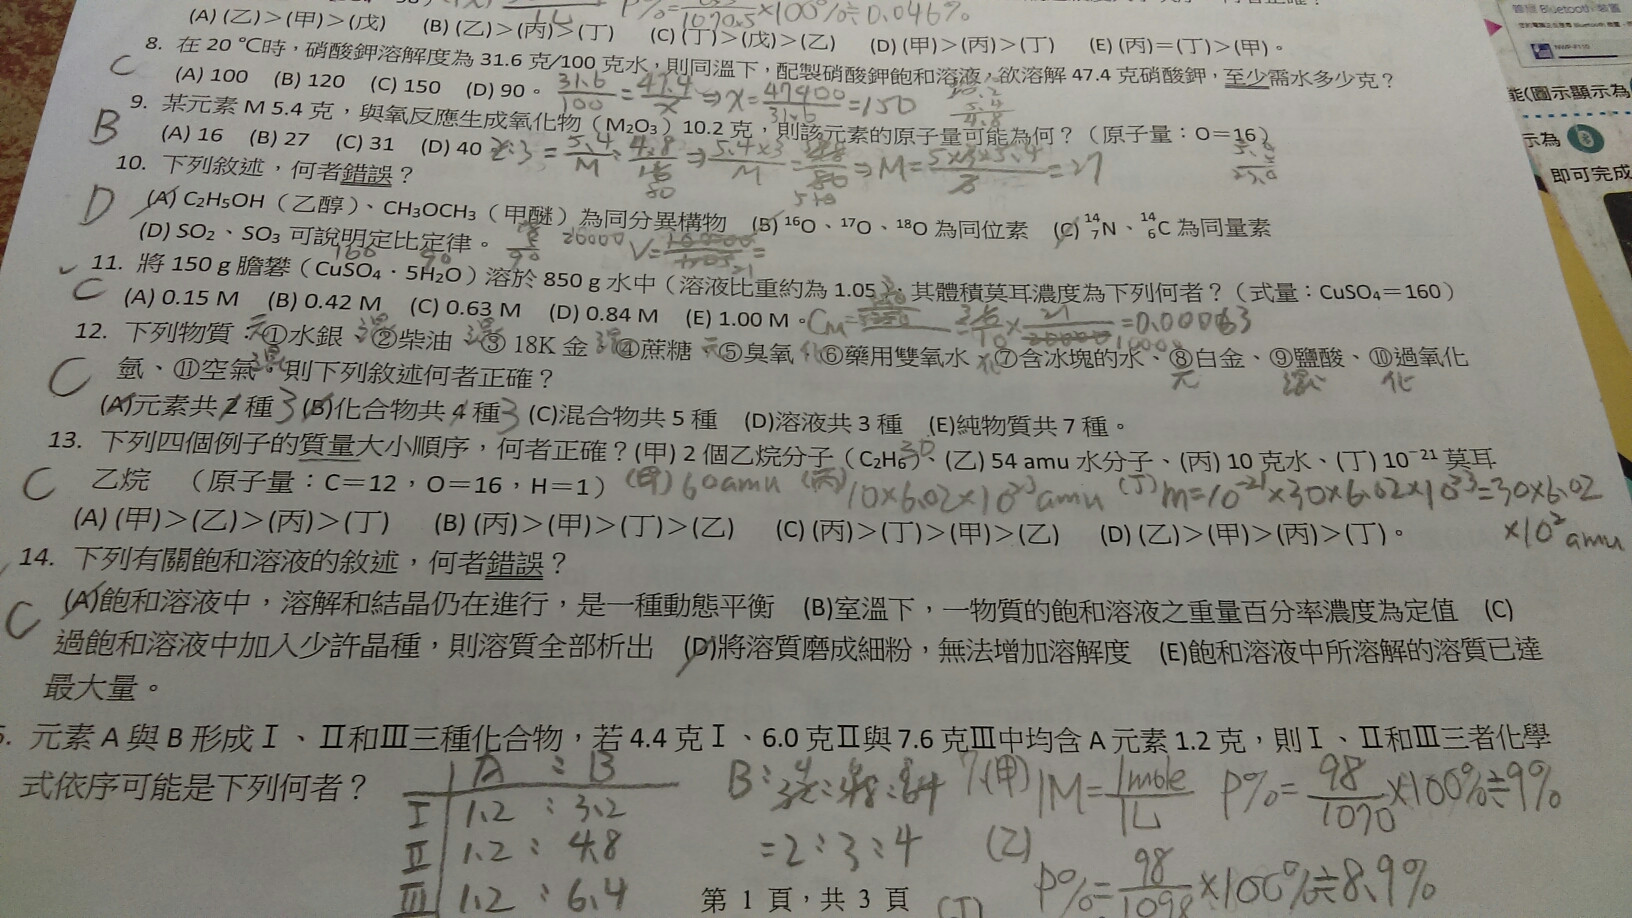 (A) (乙)＞(甲)＞(戊) (B) (乙)＞(丙)＞(丁) (C) (丁)＞(戊)＞(乙) (D) (甲)＞(丙)＞(丁) (E) (丙)＝(丁)＞(甲)。
P%= 1070.5 ×100%≑0.046%
8. 在 20 ℃時，硝酸鉀溶解度為 31.6 克/100 克水，則同溫下，配製硝酸鉀飽和溶液，欲溶解 47.4 克硝酸鉀，至少需水多少克？
C
(A) 100 (B) 120 (C) 150 (D) 90。
31.6/100 = 47.4/x ⇒ x = 47400/31.6 = 150
9. 某元素 M 5.4 克，與氧反應生成氧化物（M₂O₃）10.2 克，則該元素的原子量可能為何？（原子量：O＝16）
B
(A) 16 (B) 27 (C) 31 (D) 40
10. 下列敘述，何者錯誤？
D
(A) C₂H₅OH（乙醇）、CH₃OCH₃（甲醚）為同分異構物 (B) ¹⁶O、¹⁷O、¹⁸O 為同位素 (C) ¹⁴₇N、¹⁴₆C 為同量素
(D) SO₂、SO₃ 可說明定比定律。
160 90
11. 將 150 g 膽礬（CuSO₄．5H₂O）溶於 850 g 水中（溶液比重約為 1.05），其體積莫耳濃度為下列何者？（式量：CuSO₄＝160）
C
(A) 0.15 M (B) 0.42 M (C) 0.63 M (D) 0.84 M (E) 1.00 M。
12. 下列物質：①水銀、②柴油、③ 18K 金、④蔗糖、⑤臭氧、⑥藥用雙氧水、⑦含冰塊的水、⑧白金、⑨鹽酸、⑩過氧化
C
氫、⑪空氣，則下列敘述何者正確？
(A)元素共 2 種 3 (B)化合物共 4 種 3 (C)混合物共 5 種 (D)溶液共 3 種 (E)純物質共 7 種。
13. 下列四個例子的質量大小順序，何者正確？(甲) 2 個乙烷分子（C₂H₆）、(乙) 54 amu 水分子、(丙) 10 克水、(丁) 10⁻²¹ 莫耳
C
乙烷 （原子量：C＝12，O＝16，H＝1）
(甲) 60amu (丙) 10×6.02×10²³amu (丁) m=10⁻²¹×30×6.02×10²³=30×6.02
×10² amu
(A) (甲)＞(乙)＞(丙)＞(丁) (B) (丙)＞(甲)＞(丁)＞(乙) (C) (丙)＞(丁)＞(甲)＞(乙) (D) (乙)＞(甲)＞(丙)＞(丁)。
14. 下列有關飽和溶液的敘述，何者錯誤？
C
(A)飽和溶液中，溶解和結晶仍在進行，是一種動態平衡 (B)室溫下，一物質的飽和溶液之重量百分率濃度為定值 (C)
過飽和溶液中加入少許晶種，則溶質全部析出 (D)將溶質磨成細粉，無法增加溶解度 (E)飽和溶液中所溶解的溶質已達
最大量。
元素 A 與 B 形成Ⅰ、Ⅱ和Ⅲ三種化合物，若 4.4 克Ⅰ、6.0 克Ⅱ與 7.6 克Ⅲ中均含 A 元素 1.2 克，則Ⅰ、Ⅱ和Ⅲ三者化學
式依序可能是下列何者？
A : B
Ⅰ 1.2 : 3.2
Ⅱ 1.2 : 4.8
Ⅲ 1.2 : 6.4
=2:3:4
7.(甲) 1M = 1mole/1L P%= 98/1070 ×100%≑9%
(乙)
P%= 98/1098 ×100%≑8.9%
第 1 頁，共 3 頁
(丁)
能(圖示顯示為
示為
即可完成